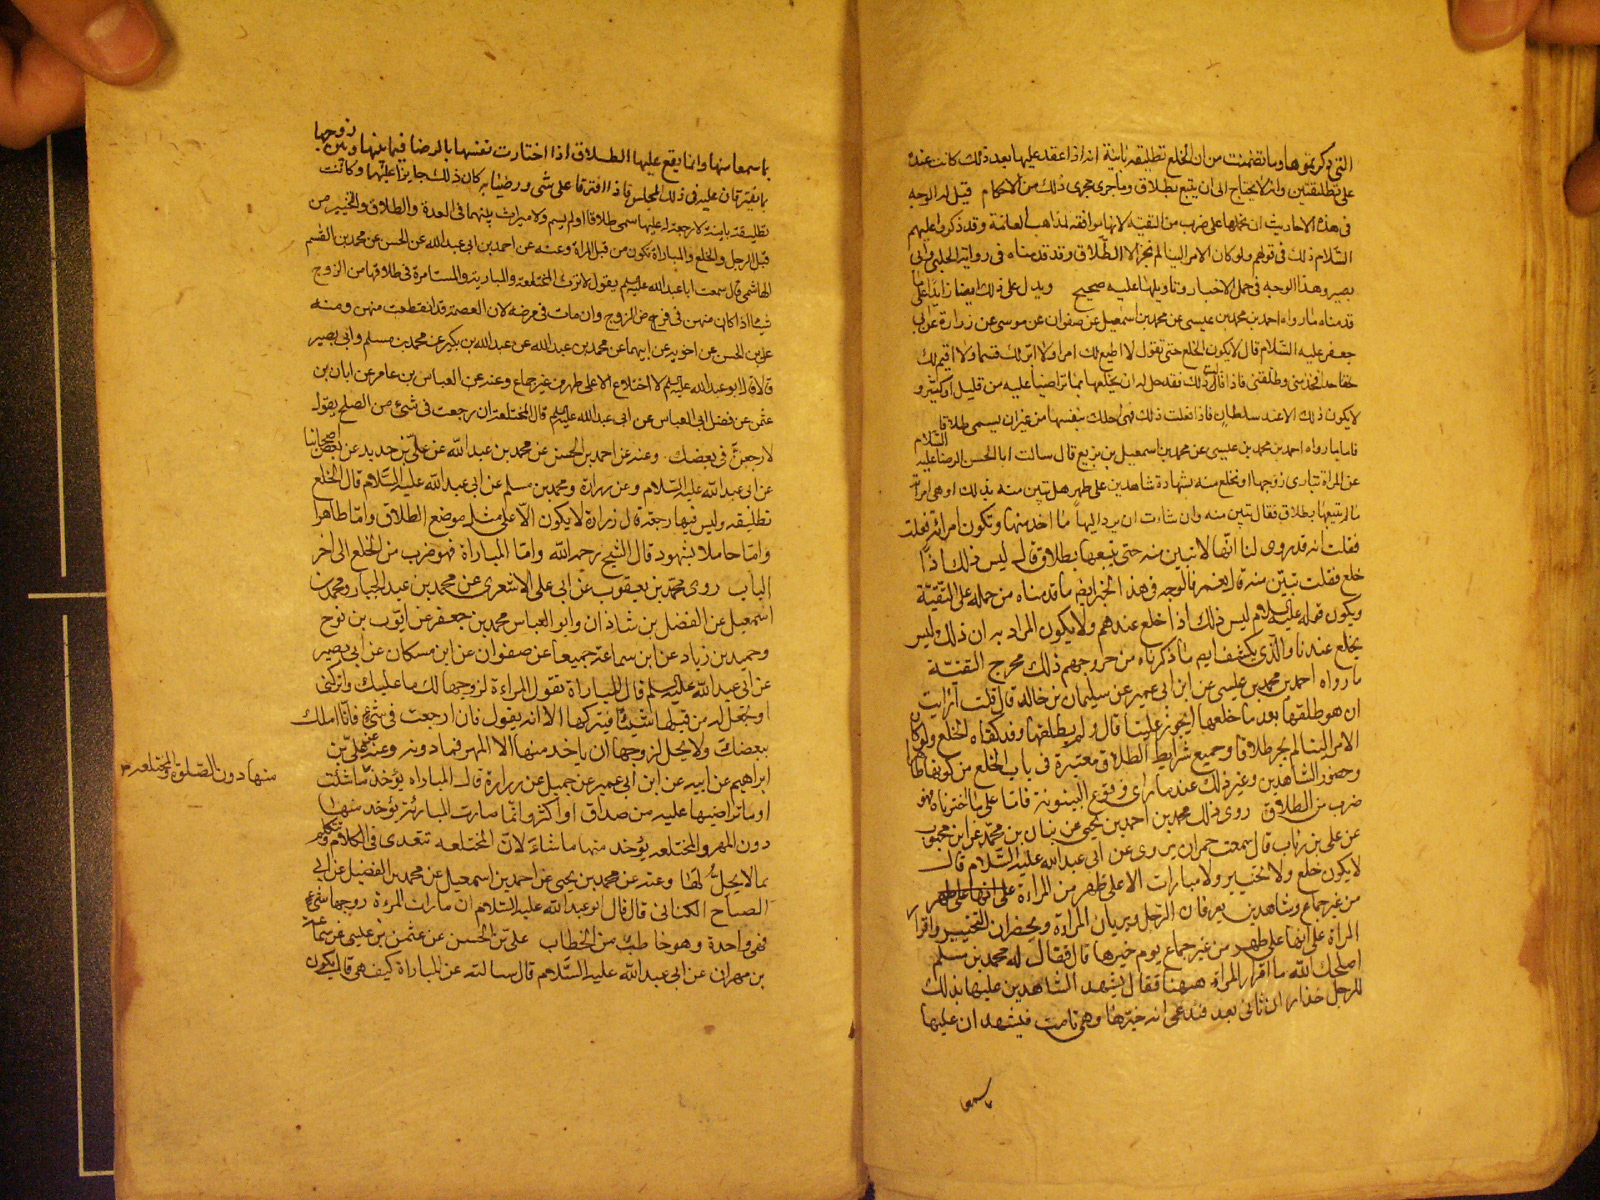 التي ذكرتموها وما تضمنت من ان الخلع تطليقة ثانية انه اذا عقد عليها بعد ذلك كانت عنده
على تطليقتين وانه لا يحتاج الى ان يتبع بطلاق وما جرى مجرى ذلك من الاحكام قيل له الوجه
في هذه الاحاديث ان نحملها على ضرب من التقية لانها موافقة لمذاهب العامة وقد ذكروا عليهم
السلام ذلك في قولهم ولو كان الامر الينا لم نجز الا الطلاق وقد قدمناه في رواية الحلبي وابي
بصير وهذا الوجه في حمل الاخبار وتاويلها عليه صحيح ويدل على ذلك ايضا زايدا على ما
قدمناه ما رواه احمد بن محمد بن عيسى عن محمد بن اسمعيل عن صفوان عن موسى عن زرارة عن ابي
جعفر عليه السلام قال لا يكون الخلع حتى تقول لا اطيع لك امرا ولا ابر لك قسما ولا اقيم لك
حدا فخذ مني وطلقني فاذا قالت ذلك فقد حل له ان يخلعها بما تراضيا عليه من قليل او كثير و
لا يكون ذلك الا عند سلطان فاذا فعلت ذلك فهي املك بنفسها من غير ان يسمى طلاقا
فاما ما رواه احمد بن محمد بن عيسى عن محمد بن اسمعيل بن بزيع قال سالت ابا الحسن الرضا عليه السلام
عن المراة تبارى زوجها او تخلع منه بشهادة شاهدين على طهر هل تبين منه بذلك او هي امراته
ما لم يتبعها بطلاق فقال تبين منه وان شاءت ان يرد اليها ما اخذ منها وتكون امراته فعلت
فقلت انه قد روى لنا انها لا تبين منه حتى يتبعها بطلاق قال ليس ذلك اذا
خلع فقلت تبين منه قال نعم فالوجه في هذا الخبر ايضا ما قدمناه من حمله على التقية
ويكون قوله عليه السلام ليس ذلك اذا خلع عندهم ولا يكون المراد به ان ذلك وليس
بخلع عندنا والذي يكشف ايضا ما ذكرناه من خروجهم ذلك مخرج التقية
ما رواه احمد بن محمد بن عيسى عن ابن ابي عمير عن سليمان بن خالد قال قلت ارايت
ان هو طلقها بعد ما خلعها ايجوز عليها قال ولم يطلقها وقد كفاه الخلع ولو كان
الامر الينا لم نجز طلاقا وجميع شرايط الطلاق معتبرة في باب الخلع من كونها طاهرا
وحضور الشاهدين وغير ذلك عند ما راى وقوع البينونة فاما على ما اخترناه فهو
ضرب من الطلاق روى ذلك محمد بن احمد بن يحيى عن بنان بن محمد عن ابن محبوب
عن علي بن رئاب قال سمعت حمران يروى عن ابي عبد الله عليه السلام قال
لا يكون خلع ولا تخيير ولا مبارات الا على طهر من المراءة على انها على طهر
من غير جماع وشاهدين يعرفان الرجل ويريان المراءة ويحضران التخيير واقرار
المراة على انها على طهر من غير جماع يوم خيرها قال فقال له محمد بن مسلم
اصلحك الله ما اقرار المراة ههنا فقال يشهد الشاهدين عليها بذلك
للرجل حذار ان تاتي بعد فتدعى انه خيرها وهي طامث فيشهدان عليها
باسمعا
باسمعا منها وانما يقع عليها الطلاق اذا اختارت نفسها بالرضا فيما بينها وبين زوجها
تطليقة باينة لا رجعة له عليها سمى طلاقا او لم يسم ولا ميراث بينهما في العدة والطلاق والتخيير من
قبل الرجل والخلع والمباراة تكون من قبل المراة وعنه عن احمد بن ابي عبد الله عن الحسن عن محمد بن القسم
الهاشمي قال سمعت ابا عبد الله عليه السلم يقول لا ترث المختلعة والبارية والمستامرة في طلاقها من الزوج
شيئا اذا كان منهن في مرض الزوج وان مات في مرضه لان العصمة قد انقطعت منهن ومنه
علي بن الحسن عن اخويه عن ابيهما عن محمد بن عبد الله عن عبد الله بن بكير عن محمد بن مسلم وابي بصير
قالا قال ابو عبد الله عليه السلم لا اختلاع الا على طهر من غير جماع وعنه عن العباس بن عامر عن ابان بن
عثمن عن فضل ابي العباس عن ابي عبد الله عليه السلم قال المختلعة ان رجعت في شيء من الصلح يقول
لارجعن في بضعك وعنه عن احمد بن الحسن عن محمد بن عبد الله عن علي بن حديد عن بعض اصحابنا
عن ابي عبد الله عليه السلام وعن زرارة ومحمد بن مسلم عن ابي عبد الله عليه السلام قال الخلع
تطليقه وليس فيها رجعة قال زرارة لا يكون الا على مثل موضع الطلاق واما طاهرا
واما حاملا بشهود قال الشيخ رحمه الله واما المباراة فهو ضرب من الخلع الى اخر
الباب روى محمد بن يعقوب عن ابي علي الاشعري عن محمد بن عبد الجبار ومحمد بن
اسمعيل عن الفضل بن شاذان وابو العباس محمد بن جعفر عن ايوب بن نوح
وحميد بن زياد عن ابن سماعة جميعا عن صفوان عن ابن مسكان عن ابي بصير
عن ابي عبد الله عليه السلم قال المباراة تقول المراءة لزوجها لك ما عليك واتركني
او تجعل له من قبلها شيئا فيتركها الا انه يقول فان ارجعت في شيء فانا املك
ببضعك ولا يحل لزوجها ان ياخذ منها الا المهر فما دونه وعنه عن علي بن
ابراهيم عن ابيه عن ابن ابي عمير عن جميل عن زرارة قال المباراه يؤخذ ما شائت
او ما تراضيا عليه من صداق او اكثر وانما صارت المبارئة يؤخذ منها
دون المهر والمختلعه يؤخذ منها ما شاء لان المختلعه تتعدى في الكلام وتكلم
بما لا يحل لها وعنه عن محمد بن يحيى عن احمد بن اسمعيل عن محمد بن الفضيل عن ابي
الصباح الكناني قال قال ابو عبد الله عليه السلام ان بارات المرءة زوجها شيء
فهي واحدة وهو خاطب من الخطاب علي بن الحسن عن عثمن بن عيسى عن سماعة
بن مهران عن ابي عبد الله عليه السلام قال سالته عن المباراة كيف هي قال يكون
منها دون الصداق والمختلعه